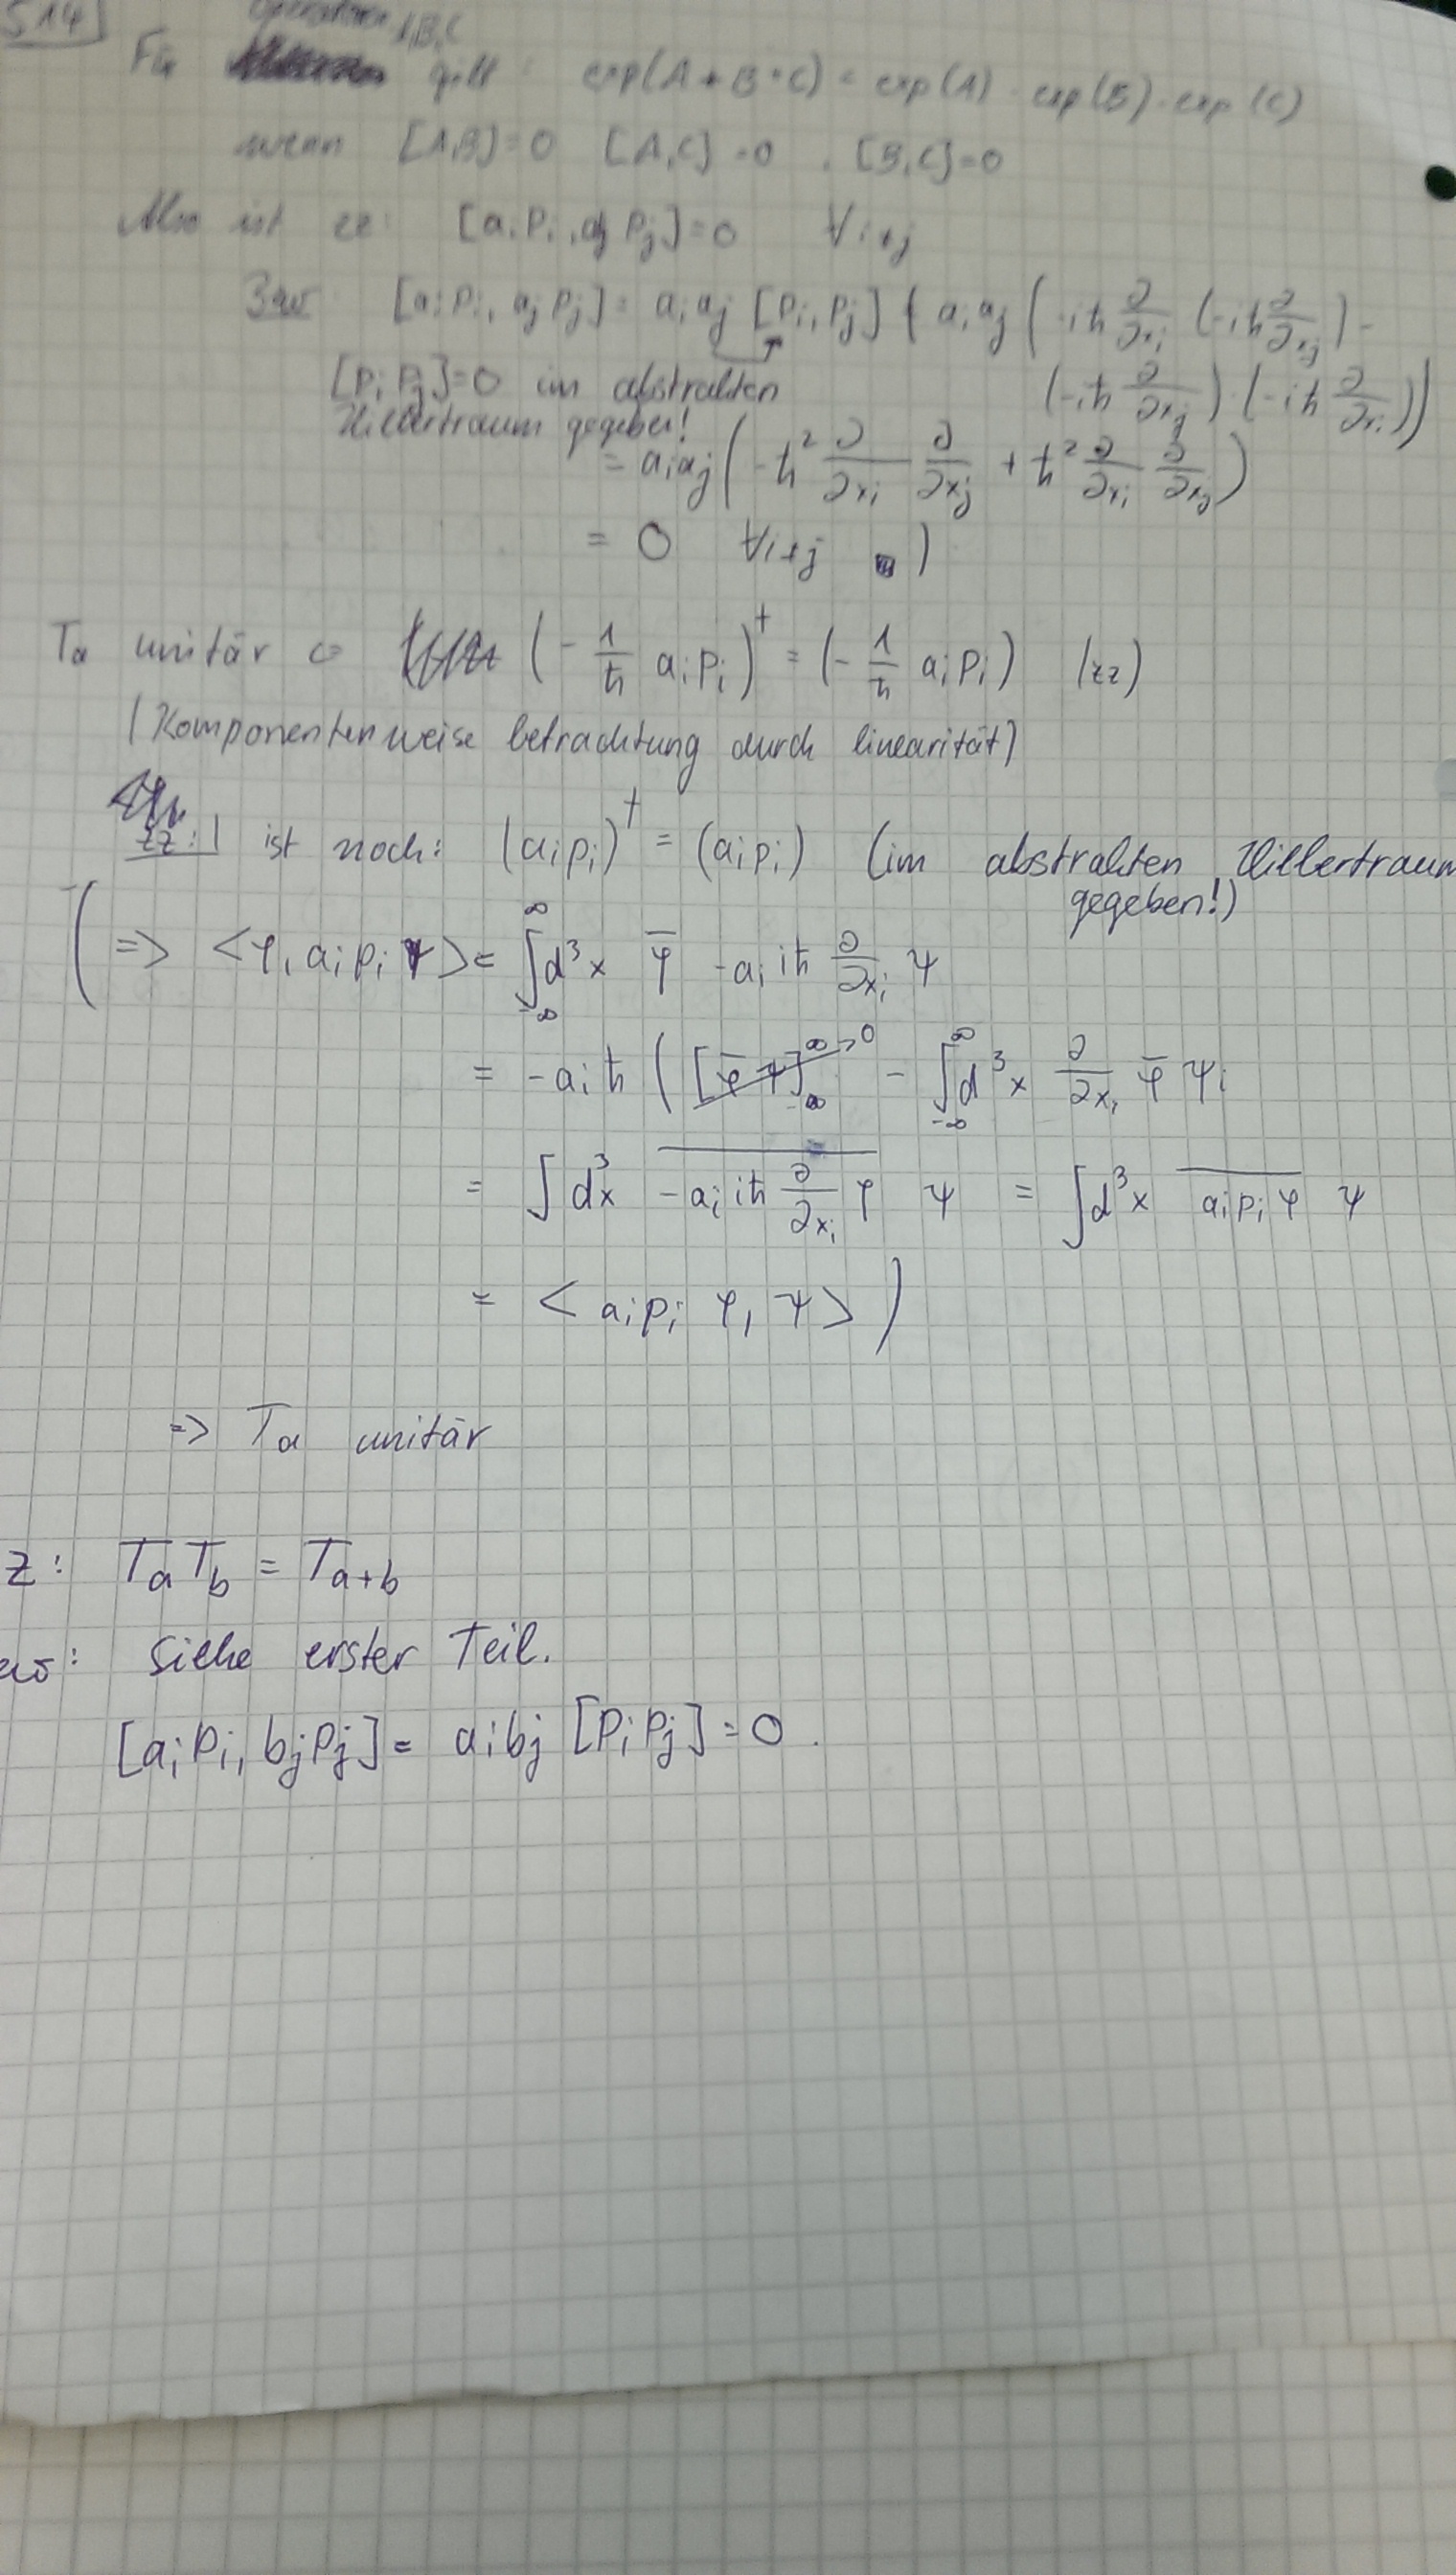 S14]
Operatoren A,B,C
Für gilt: exp(A + B + C) = exp(A) · exp(B) · exp(C)
wenn [A,B]=0 [A,C]=0 , [B,C]=0
Also ist zz: [a_i p_i, a_j p_j]=0 ∀ i≠j
Bew [a_i p_i, a_j p_j] = a_i a_j [p_i, p_j] ( a_i a_j ( -iħ ∂/∂x_i (-iħ ∂/∂x_j) -
[p_i p_j]=0 im abstrakten (-iħ ∂/∂x_j) · (-iħ ∂/∂x_i))
Hilbertraum gegeben!
= a_i a_j ( -ħ² ∂/∂x_i ∂/∂x_j + ħ² ∂/∂x_i ∂/∂x_j )
= 0 ∀ i≠j )
T_a unitär ⇐ ( - 1/ħ a_i p_i )† = ( - 1/ħ a_i p_i ) (zz)
(Komponentenweise betrachtung durch linearität)
zz: ist noch: (a_i p_i)† = (a_i p_i) (im abstrakten Hilbertraum
gegeben!)
( => <φ, a_i p_i ψ> = ∫_{-∞}^{∞} d³x φ̅ -a_i iħ ∂/∂x_i ψ
= -a_i ħ ( [φ̅ ψ]_{-∞}^{∞} →0 - ∫_{-∞}^{∞} d³x ∂/∂x_i φ̅ ψ_i
= ∫ d³x \overline{-a_i iħ ∂/∂x_i φ} ψ = ∫ d³x \overline{a_i p_i φ} ψ
= < a_i p_i φ, ψ > )
=> T_a unitär
z: T_a T_b = T_{a+b}
ew: siehe erster Teil.
[a_i p_i, b_j p_j] = a_i b_j [p_i p_j] = 0 .